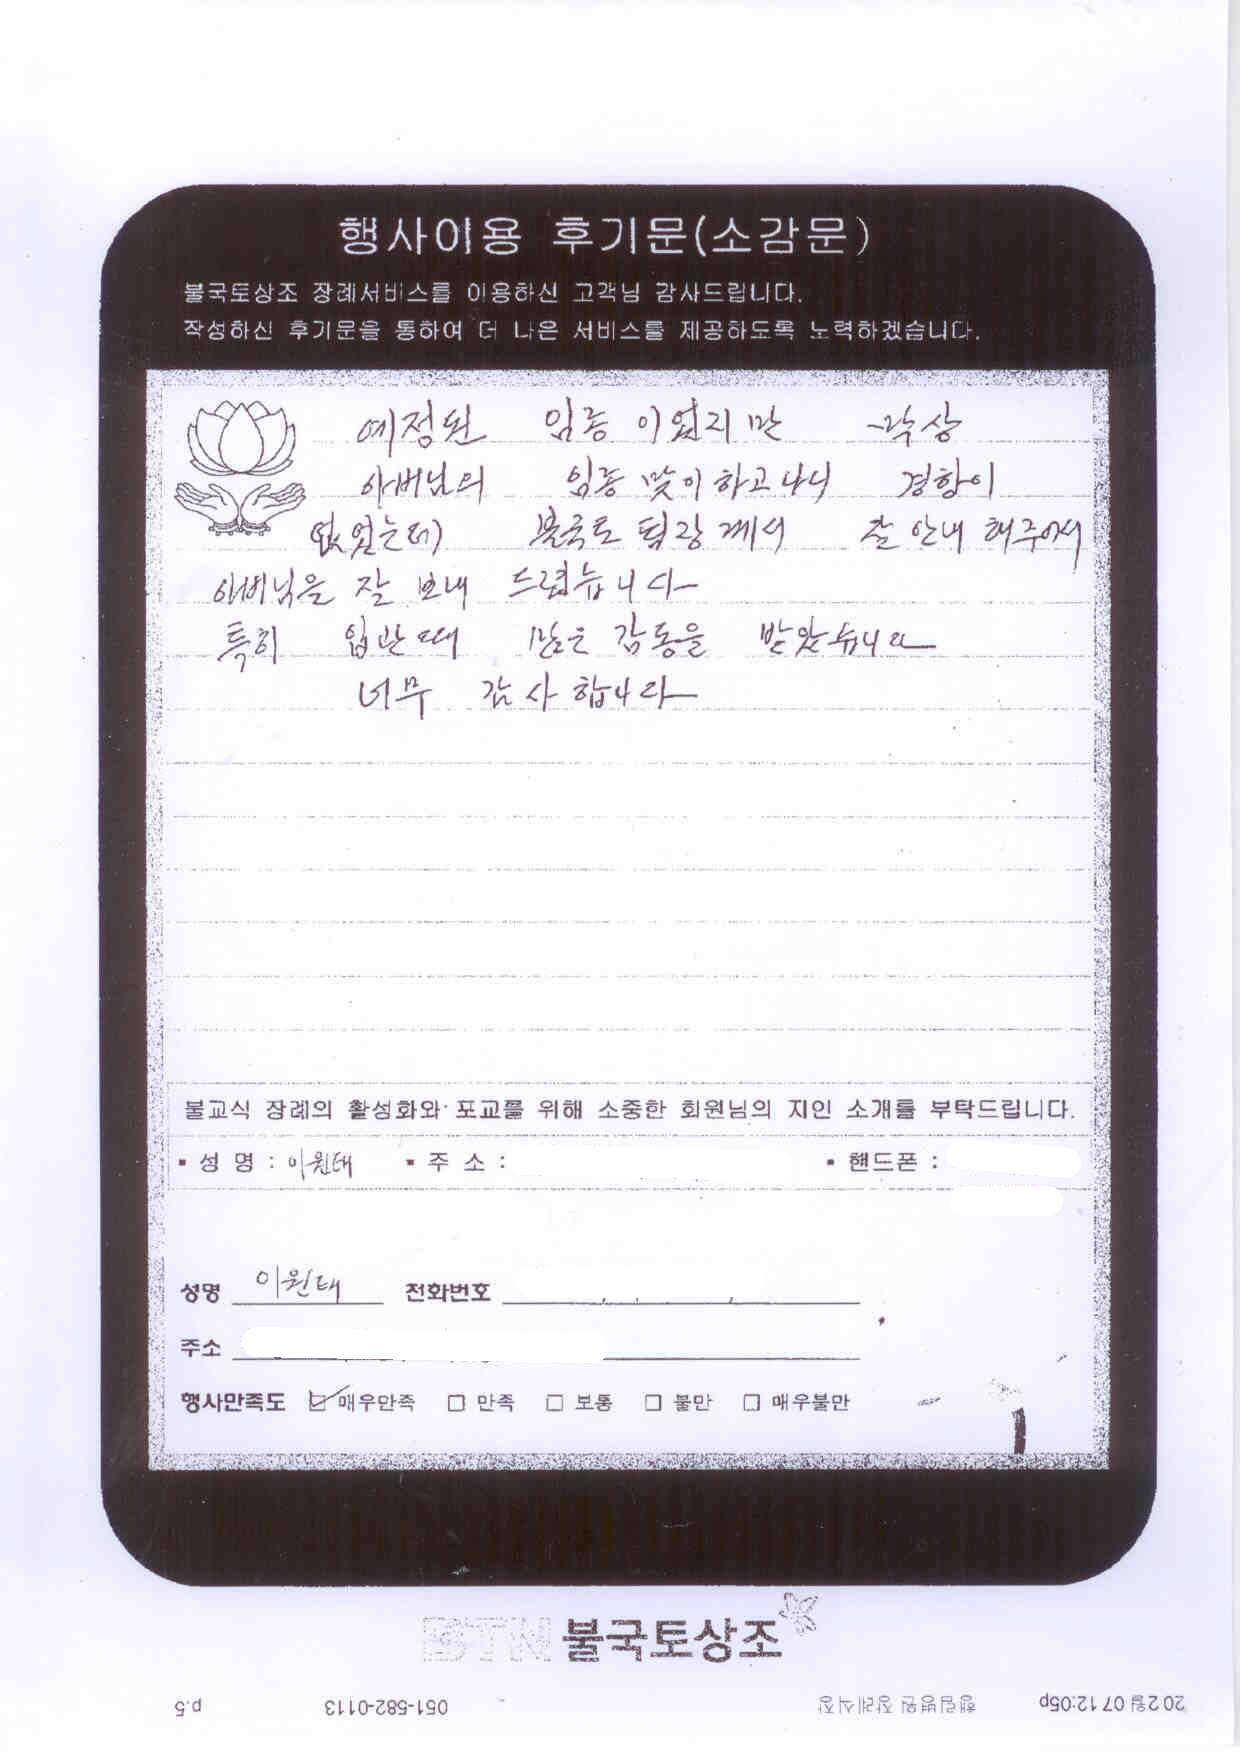 행사이용 후기문(소감문)
불국토상조 장례서비스를 이용하신 고객님 감사드립니다.
작성하신 후기문을 통하여 더 나은 서비스를 제공하도록 노력하겠습니다.
예정된 임종이었지만 막상
아버님의 임종 맞이하고나니 경황이
없었는데 불국토 팀장께서 잘 안내 해주어서
아버님을 잘 보내 드렸습니다
특히 입관때 많은 감동을 받았습니다
너무 감사합니다
불교식 장례의 활성화와 포교를 위해 소중한 회원님의 지인 소개를 부탁드립니다.
▪ 성 명 : 이원태 ▪ 주 소 : ▪ 핸드폰 :
성명 이원태 전화번호
주소
행사만족도 ☑ 매우만족 □ 만족 □ 보통 □ 불만 □ 매우불만
BTN 불국토상조
p.5 051-582-0113 행림병원장례식장 202월 07 12:05p